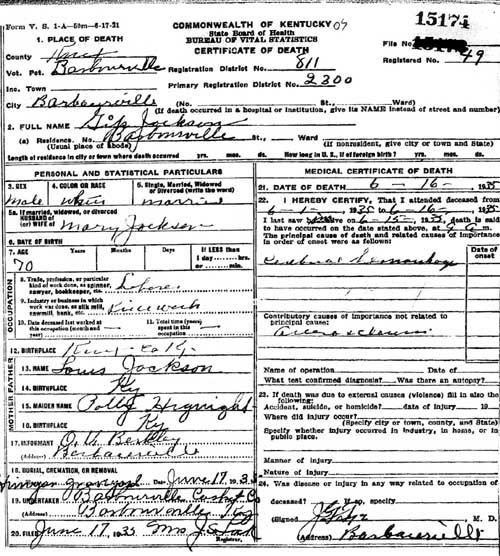 Form V. S. 1-A—50m—6-17-31
COMMONWEALTH OF KENTUCKY 07
State Board of Health
BUREAU OF VITAL STATISTICS
CERTIFICATE OF DEATH
15174
File No.
Registered No. 49
1. PLACE OF DEATH
County Knox
Vot. Pct. Barbourville
Registration District No. 811
Inc. Town
Primary Registration District No. 2300
City Barbourville (No. St., Ward)
(If death occurred in a hospital or institution, give its NAME instead of street and number)
2. FULL NAME Jackson
(a) Residence. No. Barbourville St., Ward
(Usual place of abode) (If nonresident, give city or town and State)
Length of residence in city or town where death occurred yrs. mos. ds. How long in U. S., if of foreign birth? yrs. mos. ds.
PERSONAL AND STATISTICAL PARTICULARS
3. SEX 4. COLOR OR RACE 5. Single, Married, Widowed or Divorced (write the word)
Male White married
5a. If married, widowed, or divorced
HUSBAND of
(or) WIFE of Mary Jackson
6. DATE OF BIRTH
7. AGE Years Months Days If LESS than
1 day hrs.
or min.
70
OCCUPATION
8. Trade, profession, or particular
kind of work done, as spinner,
sawyer, bookkeeper, etc.
9. Industry or business in which
work was done, as silk mill,
sawmill, bank, etc.
10. Date deceased last worked at
this occupation (month and
year)
11. Total time (years)
spent in this
occupation
12. BIRTHPLACE Ky.
MOTHER FATHER
13. NAME Louis Jackson
14. BIRTHPLACE Ky
15. MAIDEN NAME Polly
16. BIRTHPLACE Ky
17. INFORMANT
(Address) Barbourville
18. BURIAL, CREMATION, OR REMOVAL
Date June 17, 1935
19. UNDERTAKER Barbourville Casket Co
(Address) Barbourville Ky
20. FILED June 17, 1935 Mrs
Registrar.
MEDICAL CERTIFICATE OF DEATH
21. DATE OF DEATH 6 - 16 - , 1935
22. I HEREBY CERTIFY, That I attended deceased from
6 - 1 - 1935 to 6 - 16 - , 1935
I last saw alive on 6 - 15 - , 1935, death is said
to have occurred on the date stated above, at m.
The principal cause of death and related causes of importance
in order of onset were as follows:
Date of
onset
Cerebral Hemorrhage
Contributory causes of importance not related to
principal cause:
Name of operation Date of
What test confirmed diagnosis? Was there an autopsy?
23. If death was due to external causes (violence) fill in also the
following:
Accident, suicide, or homicide? date of injury 19
Where did injury occur?
(Specify city or town, county, and State)
Specify whether injury occurred in industry, in home, or in
public place.
Manner of injury
Nature of injury
24. Was disease or injury in any way related to occupation of
deceased? If so, specify
(Signed) M. D.
(Address) Barbourville